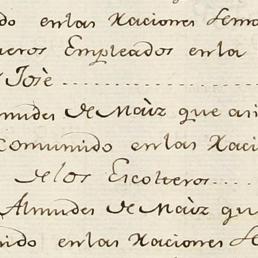 do enlas Raciones Sema
ueros Empleados enla
Josè
lmudes de Maìz que asi
Comunido enlas Raci
delos Escolteros
Almudes de Maìz qu
nido enlas Raciones Se